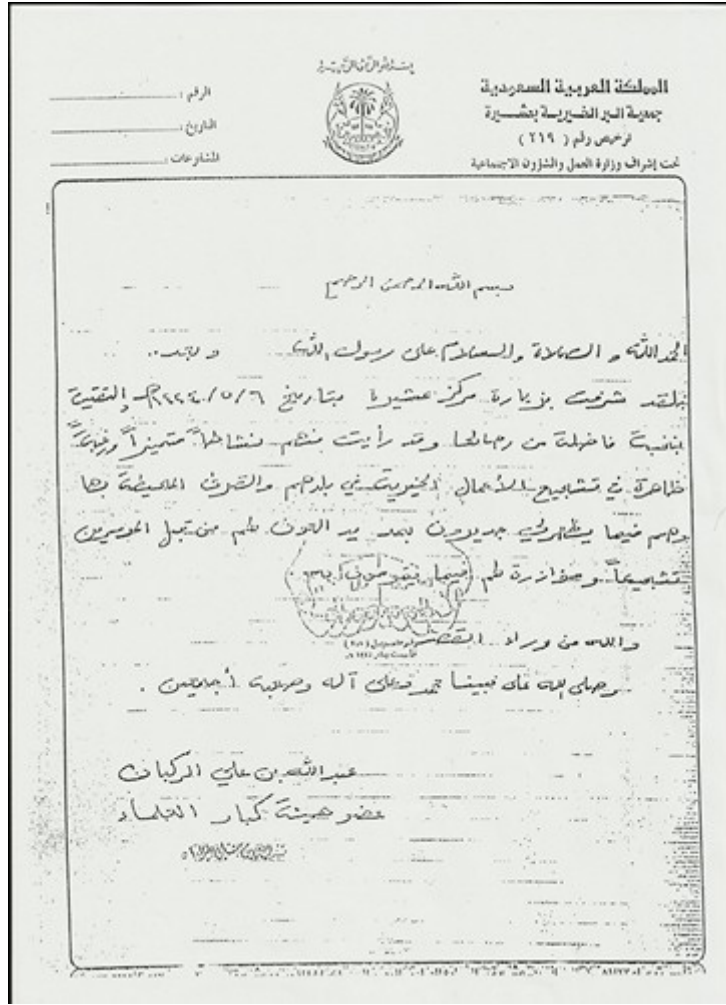 بسم الله الرحمن الرحيم
المملكة العربية السعودية
جمعية البر الخيرية بعشيرة
ترخيص رقم ( ٢١٩ )
تحت إشراف وزارة العمل والشؤون الاجتماعية
الرقم :
التاريخ :
المشفوعات :
بسم الله الرحمن الرحيم
الحمد لله و الصلاة والسلام على رسول الله وبعد ..
فلقد شرفت بزيارة مركز عشيرة بتاريخ ٥/٦/ والتقيت
بنخبة فاضلة من رجالها وقد رأيت منهم نشاطاً متميزاً ورغبة
ظاهرة في تشجيع الأعمال الخيرية في بلدهم والقرى المحيطة بها
وهم فيما يظهر لي جديرون بمد يد العون لهم من قبل الموسرين
تشجيعاً ومؤازرة لهم فيما يقومون به
والله من وراء القصد
وصلى الله على نبينا محمد وعلى آله وصحبه أجمعين .
عبدالله بن علي الركبان
عضو هيئة كبار العلماء